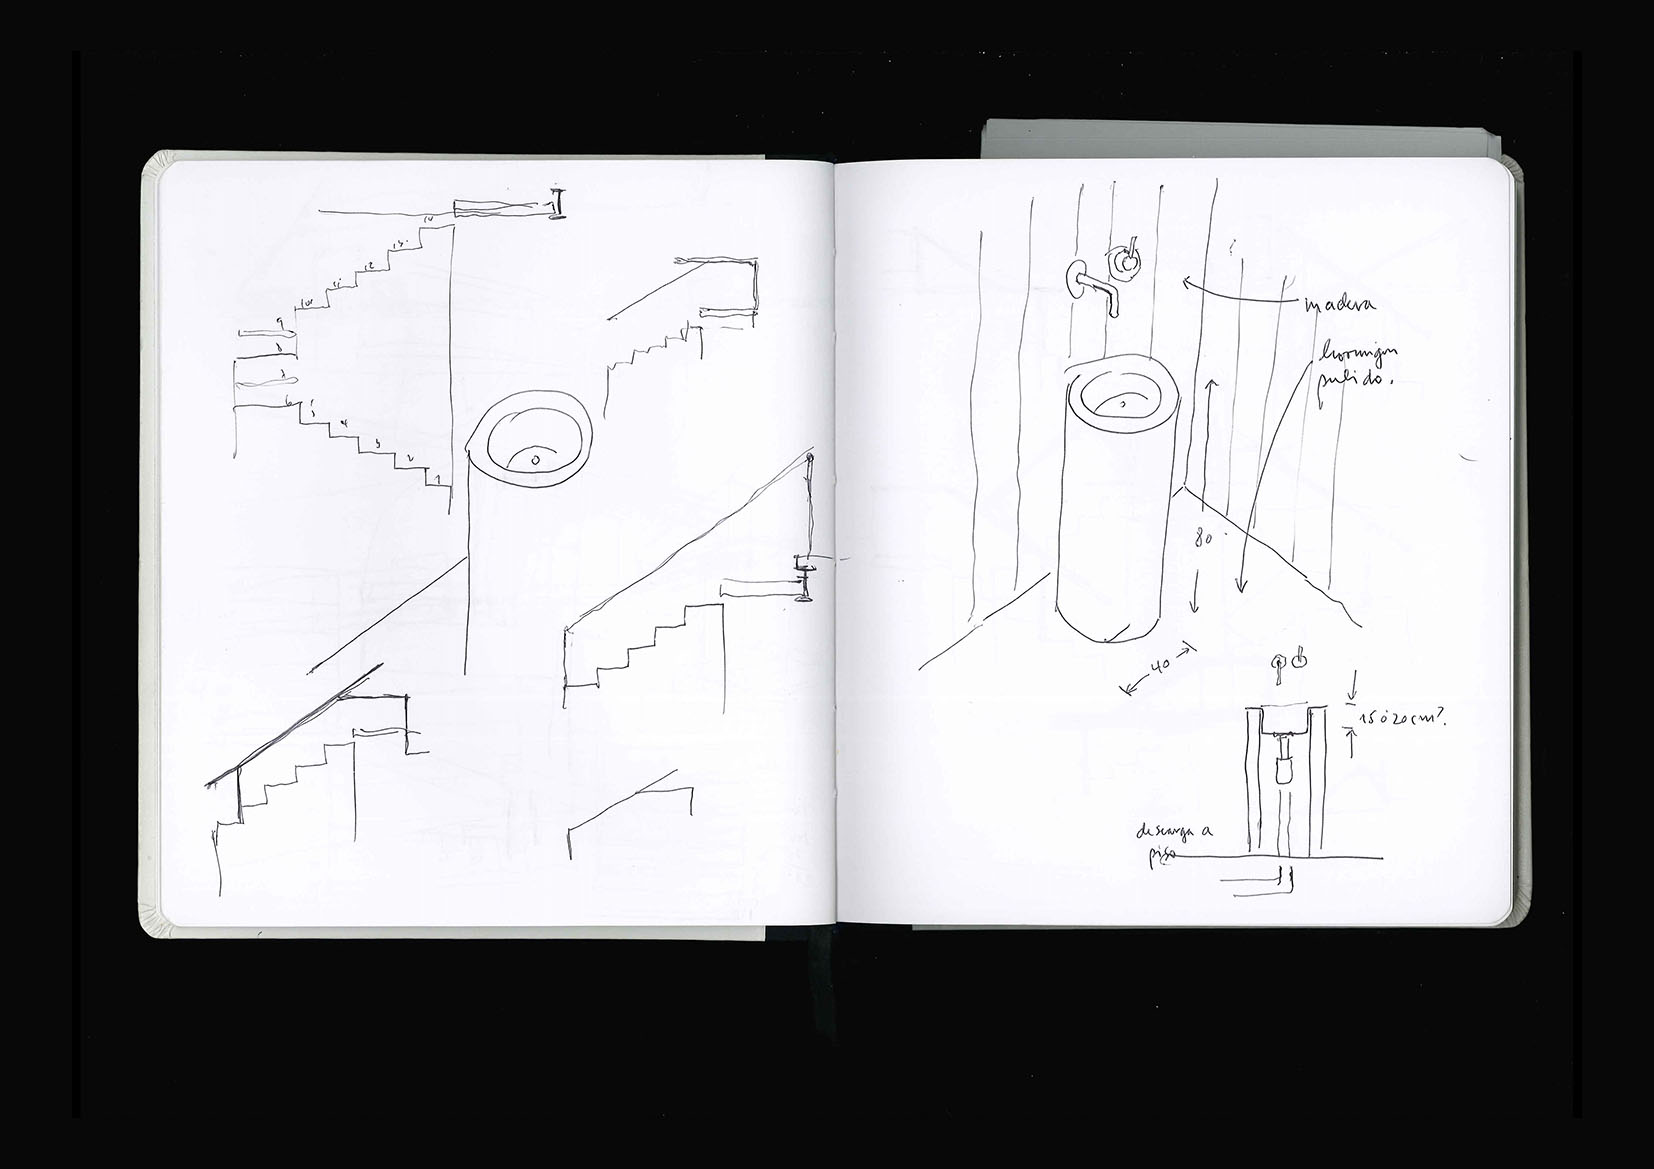 14
13
12
11
10
9
8
7
6
5
4
3
2
1
madera
hormigon
pulido.
80
40
15 ó 20 cm?
descarga a
piso